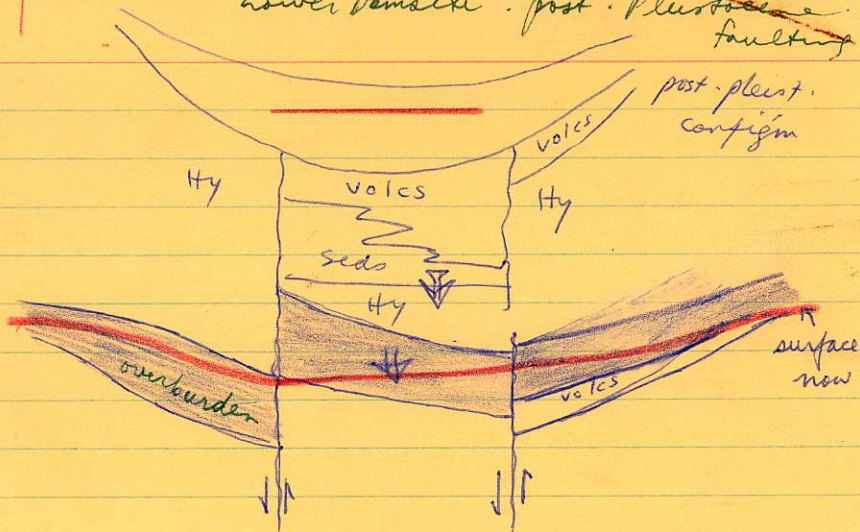 Lower Damsite . post . Pleistocene
faulting
post . pleist .
config'n
volcs
Hy
volcs
Hy
Seds
Hy
overburden
volcs
surface
now